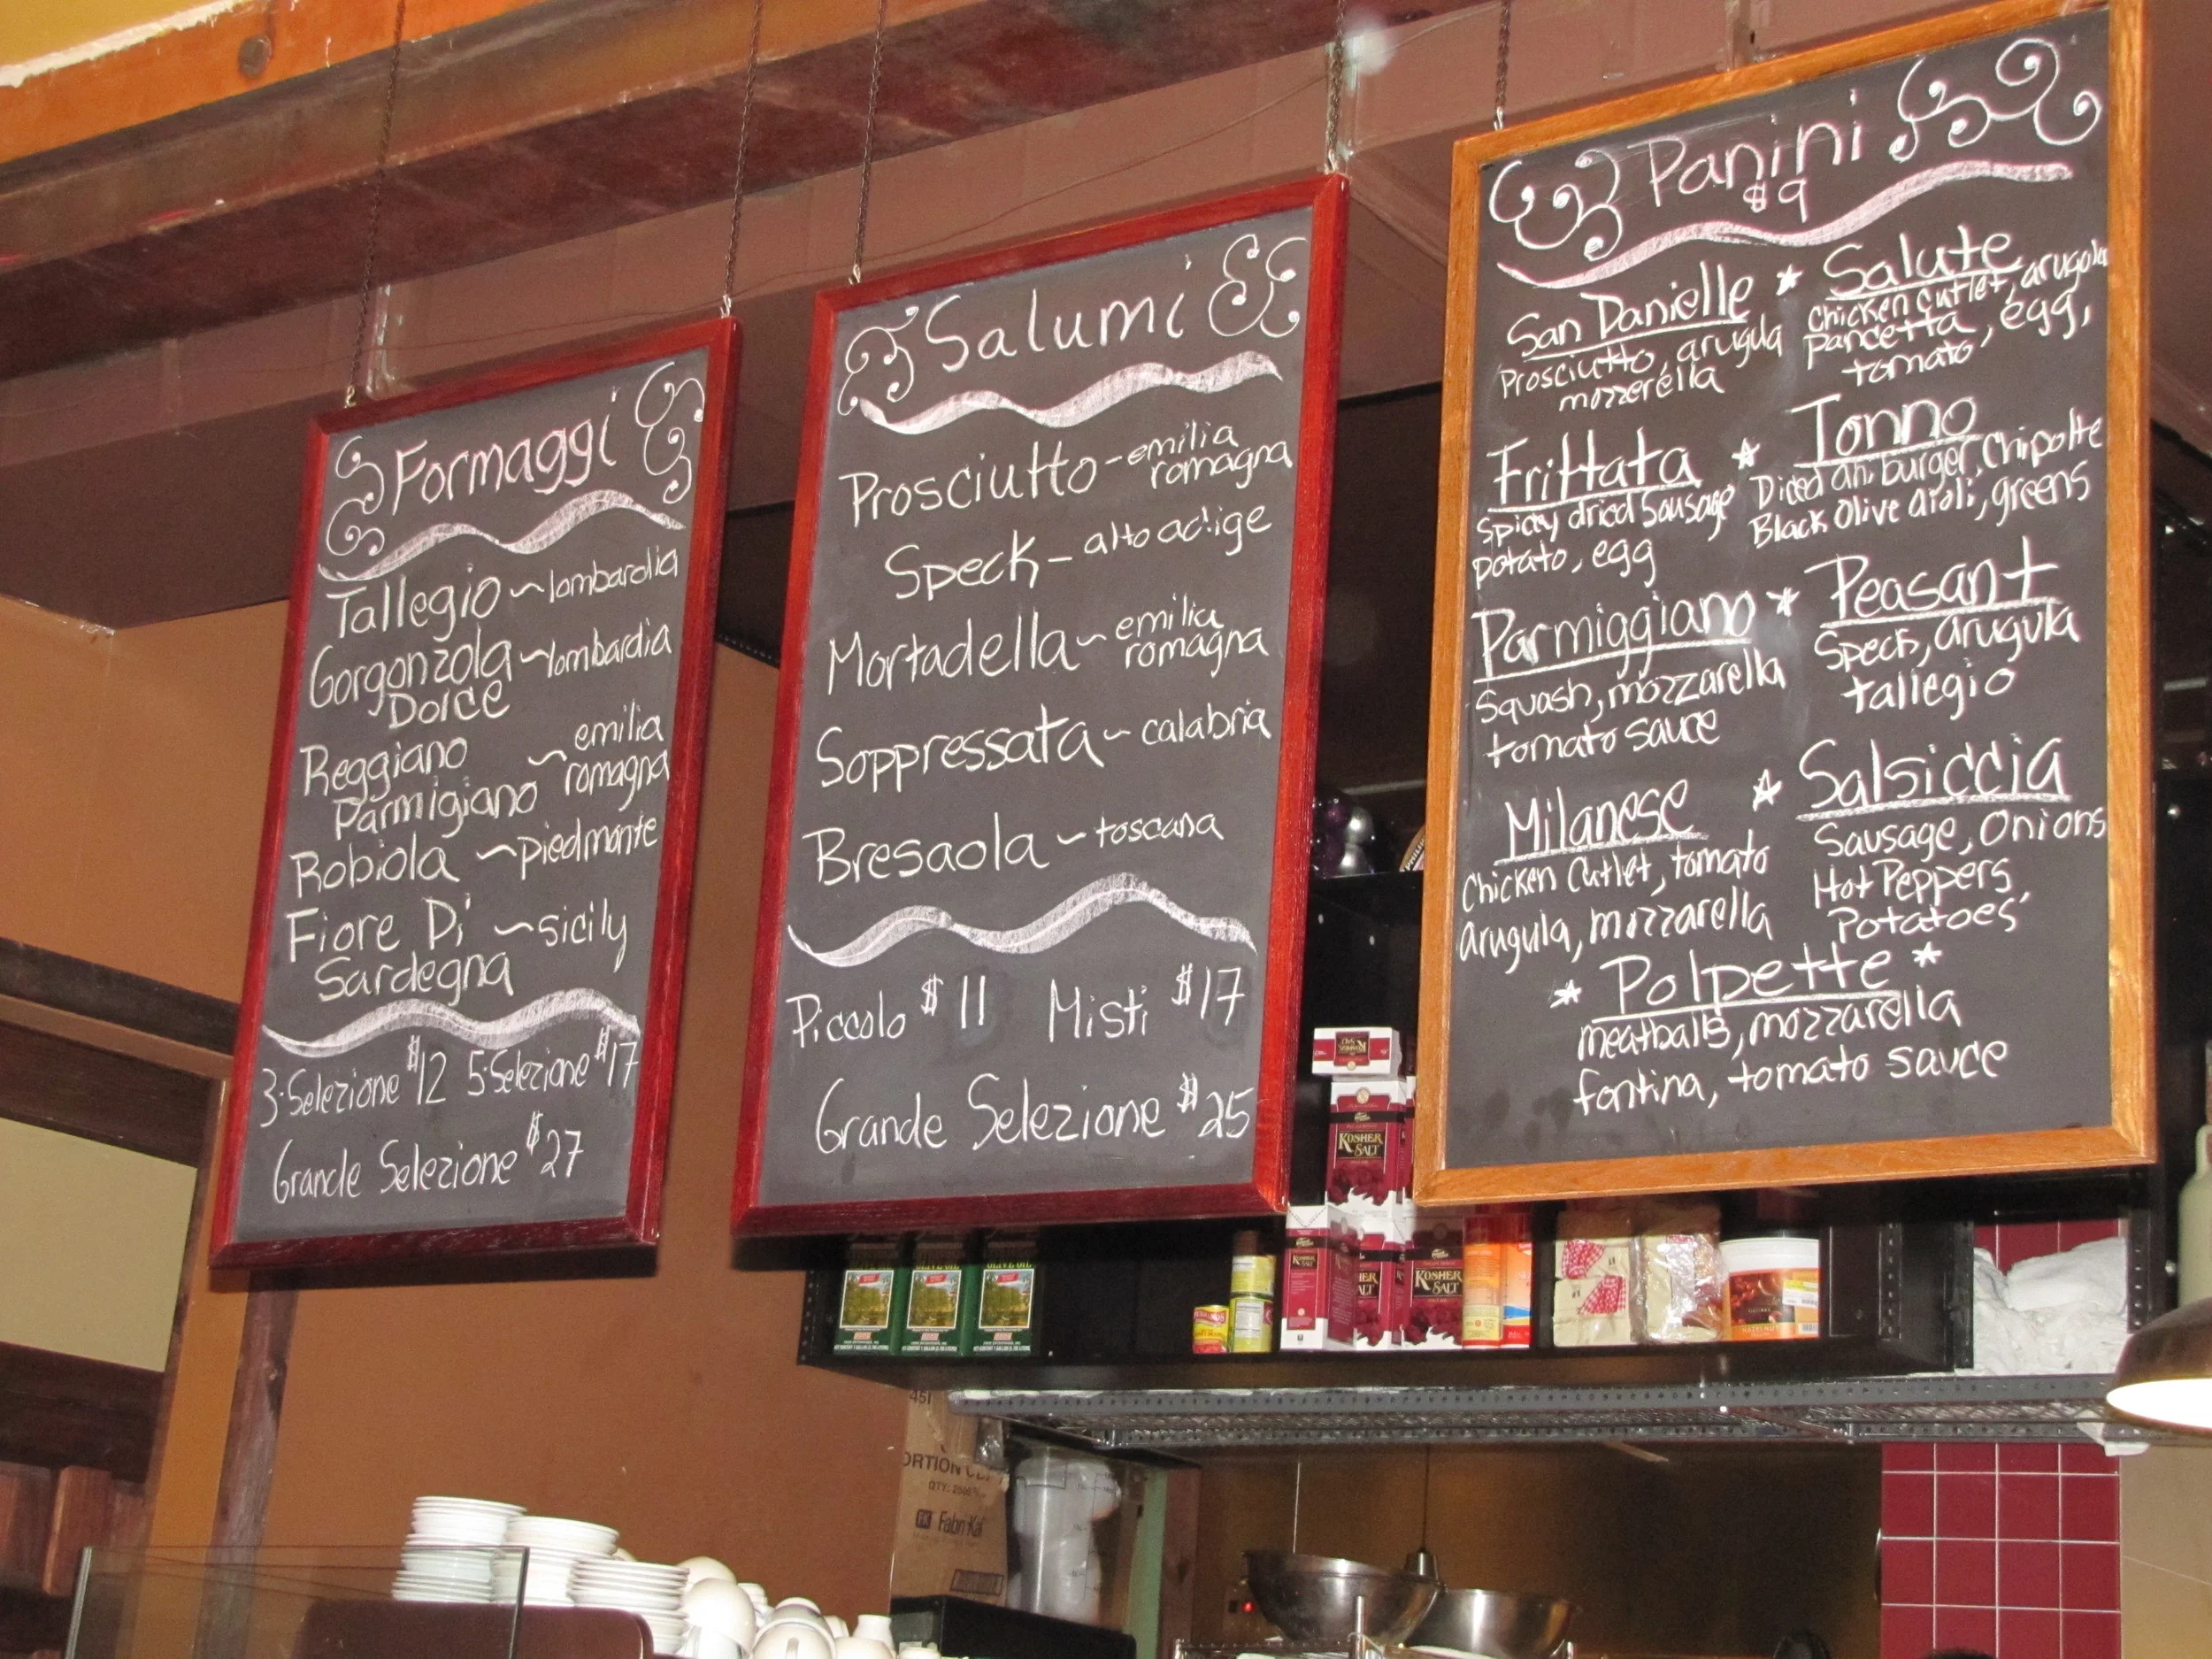 Formaggi
Tallegio ~ lombardia
Gorgonzola ~ lombardia
Dolce
Reggiano ~ emilia
Parmigiano romagna
Robiola ~ piedmonte
Fiore Di ~ sicily
Sardegna
3·Selezione $12 5·Selezione $17
Grande Selezione $27
Salumi
Prosciutto - emilia
romagna
Speck - alto adige
Mortadella ~ emilia
romagna
Soppressata ~ calabria
Bresaola ~ toscana
Piccolo $11 Misti $17
Grande Selezione $25
Panini
$9
San Danielle *
Prosciutto, arugula
mozzerella
Salute
Chicken Cutlet, arugula
pancetta, egg,
tomato
Frittata *
Spicy dried Sausage
potato, egg
Tonno
Diced ahi burger, Chipolte
Black Olive aioli, greens
Parmiggiano *
Squash, mozzarella
tomato sauce
Peasant
Speck, arugula
tallegio
Milanese *
Chicken Cutlet, tomato
arugula, mozzarella
Salsiccia
Sausage, Onions
Hot Peppers
Potatoes
* Polpette *
meatballs, mozzarella
fontina, tomato sauce
KOSHER
SALT
KOSHER
SALT
OLIVE OIL
QTY: 2500
Fabri-Kal